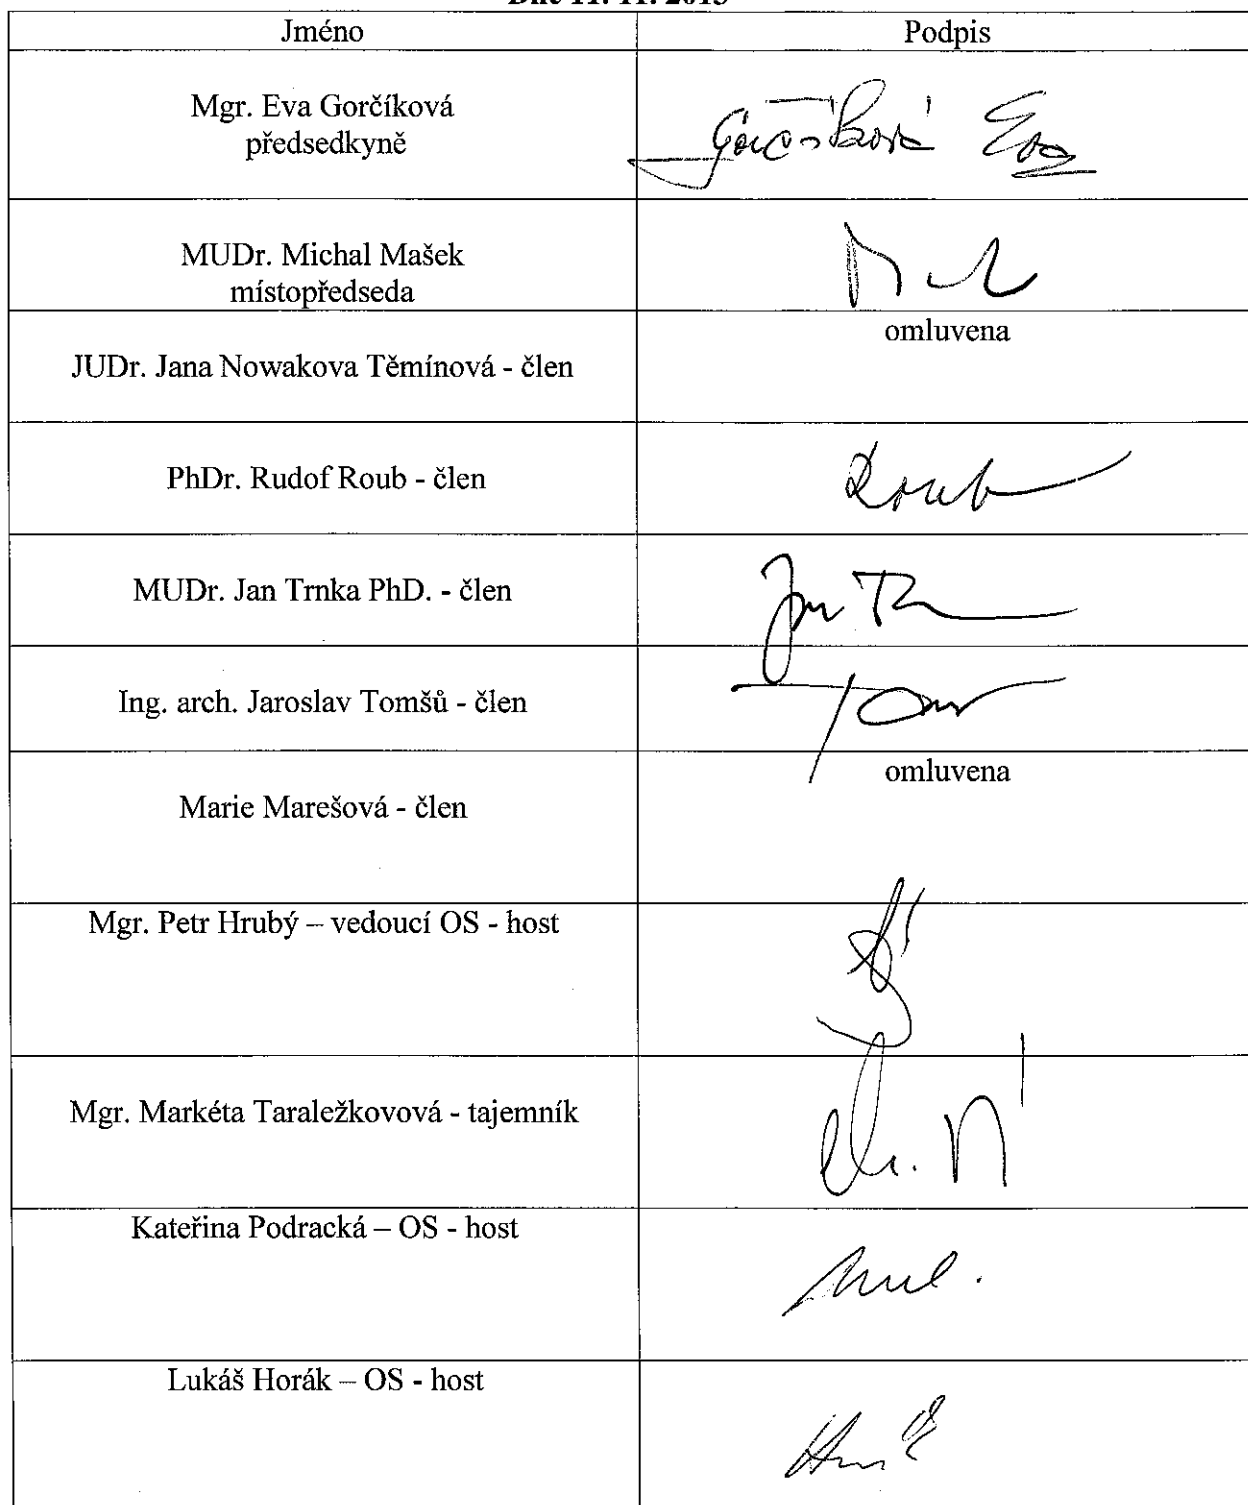 Dne 11. 11. 2013
Jméno Podpis
Mgr. Eva Gorčíková
předsedkyně
Gorčíková Eva
MUDr. Michal Mašek
místopředseda
omluvena
JUDr. Jana Nowakova Těmínová - člen
PhDr. Rudof Roub - člen
Roub
MUDr. Jan Trnka PhD. - člen
Ing. arch. Jaroslav Tomšů - člen
omluvena
Marie Marešová - člen
Mgr. Petr Hrubý – vedoucí OS - host
Mgr. Markéta Taraležkovová - tajemník
Kateřina Podracká – OS - host
Lukáš Horák – OS - host